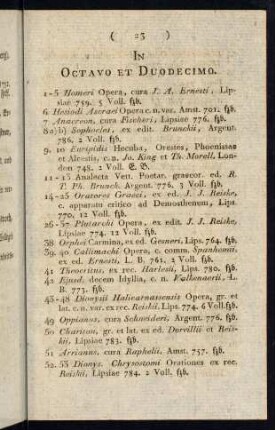 ( 23 )
IN
OCTAVO ET DUODECIMO.
1-5 Homeri Opera, cura J. A. Ernesti, Lip-
siae 759. 5 Voll. fzb.
6 Hesiodi Ascraei Opera c. n. ver. Amst. 701. fzb.
7 Anacreon, cura Fischeri, Lipsiae 776. fzb.
8 a) b) Sophocles, ex edit. Brunckii, Argent.
786. 2 Voll. fzb.
9. 10 Euripidis Hecuba, Orestes, Phoenissae
et Alcestis, c. n. Jo. King et Th. Morell. Lon-
den 748. 2 Voll. E. B.
11-13 Analecta Vett. Poetar. graecor. ed. R.
T. Ph. Brunck. Argent. 776. 3 Voll. fzb.
14-25 Oratores Graeci, ex ed. J. J. Reiske,
c. apparatu critico ad Demosthenem, Lips.
770. 12 Voll. fzb.
26-37 Plutarchi Opera, ex edit. J. J. Reiske,
Lipsiae 774. 12 Voll. fzb.
38 Orphei Carmina, ex ed. Gesneri, Lips. 764. fzb.
39. 40 Callimachi Opera, c. comm. Spanhemii.
ex ed. Ernesti. L. B. 761. 2 Voll. fzb.
41 Theocritus, ex rec. Harlesii, Lips. 780. fzb.
42 Ejusd. decem Idyllia, c. n. Valkenaerii, L.
B. 773. fzb.
43-48 Dionysii Halicarnassensis Opera, gr. et
lat. c. n. var. ex rec. Reiskii. Lips. 774. 6 Voll. fzb.
49 Oppianus, cura Schneideri, Argent. 776. fzb.
50 Chariton, gr. et lat. ex ed. Dorvillii et Reis-
kii, Lipsiae 783. fzb.
51 Arrianus, cura Raphelii. Amst. 757. fzb.
52. 53 Dionys. Chrysostomi Orationes ex rec.
Reiskii, Lipsiae 784. 2 Voll. fzb.